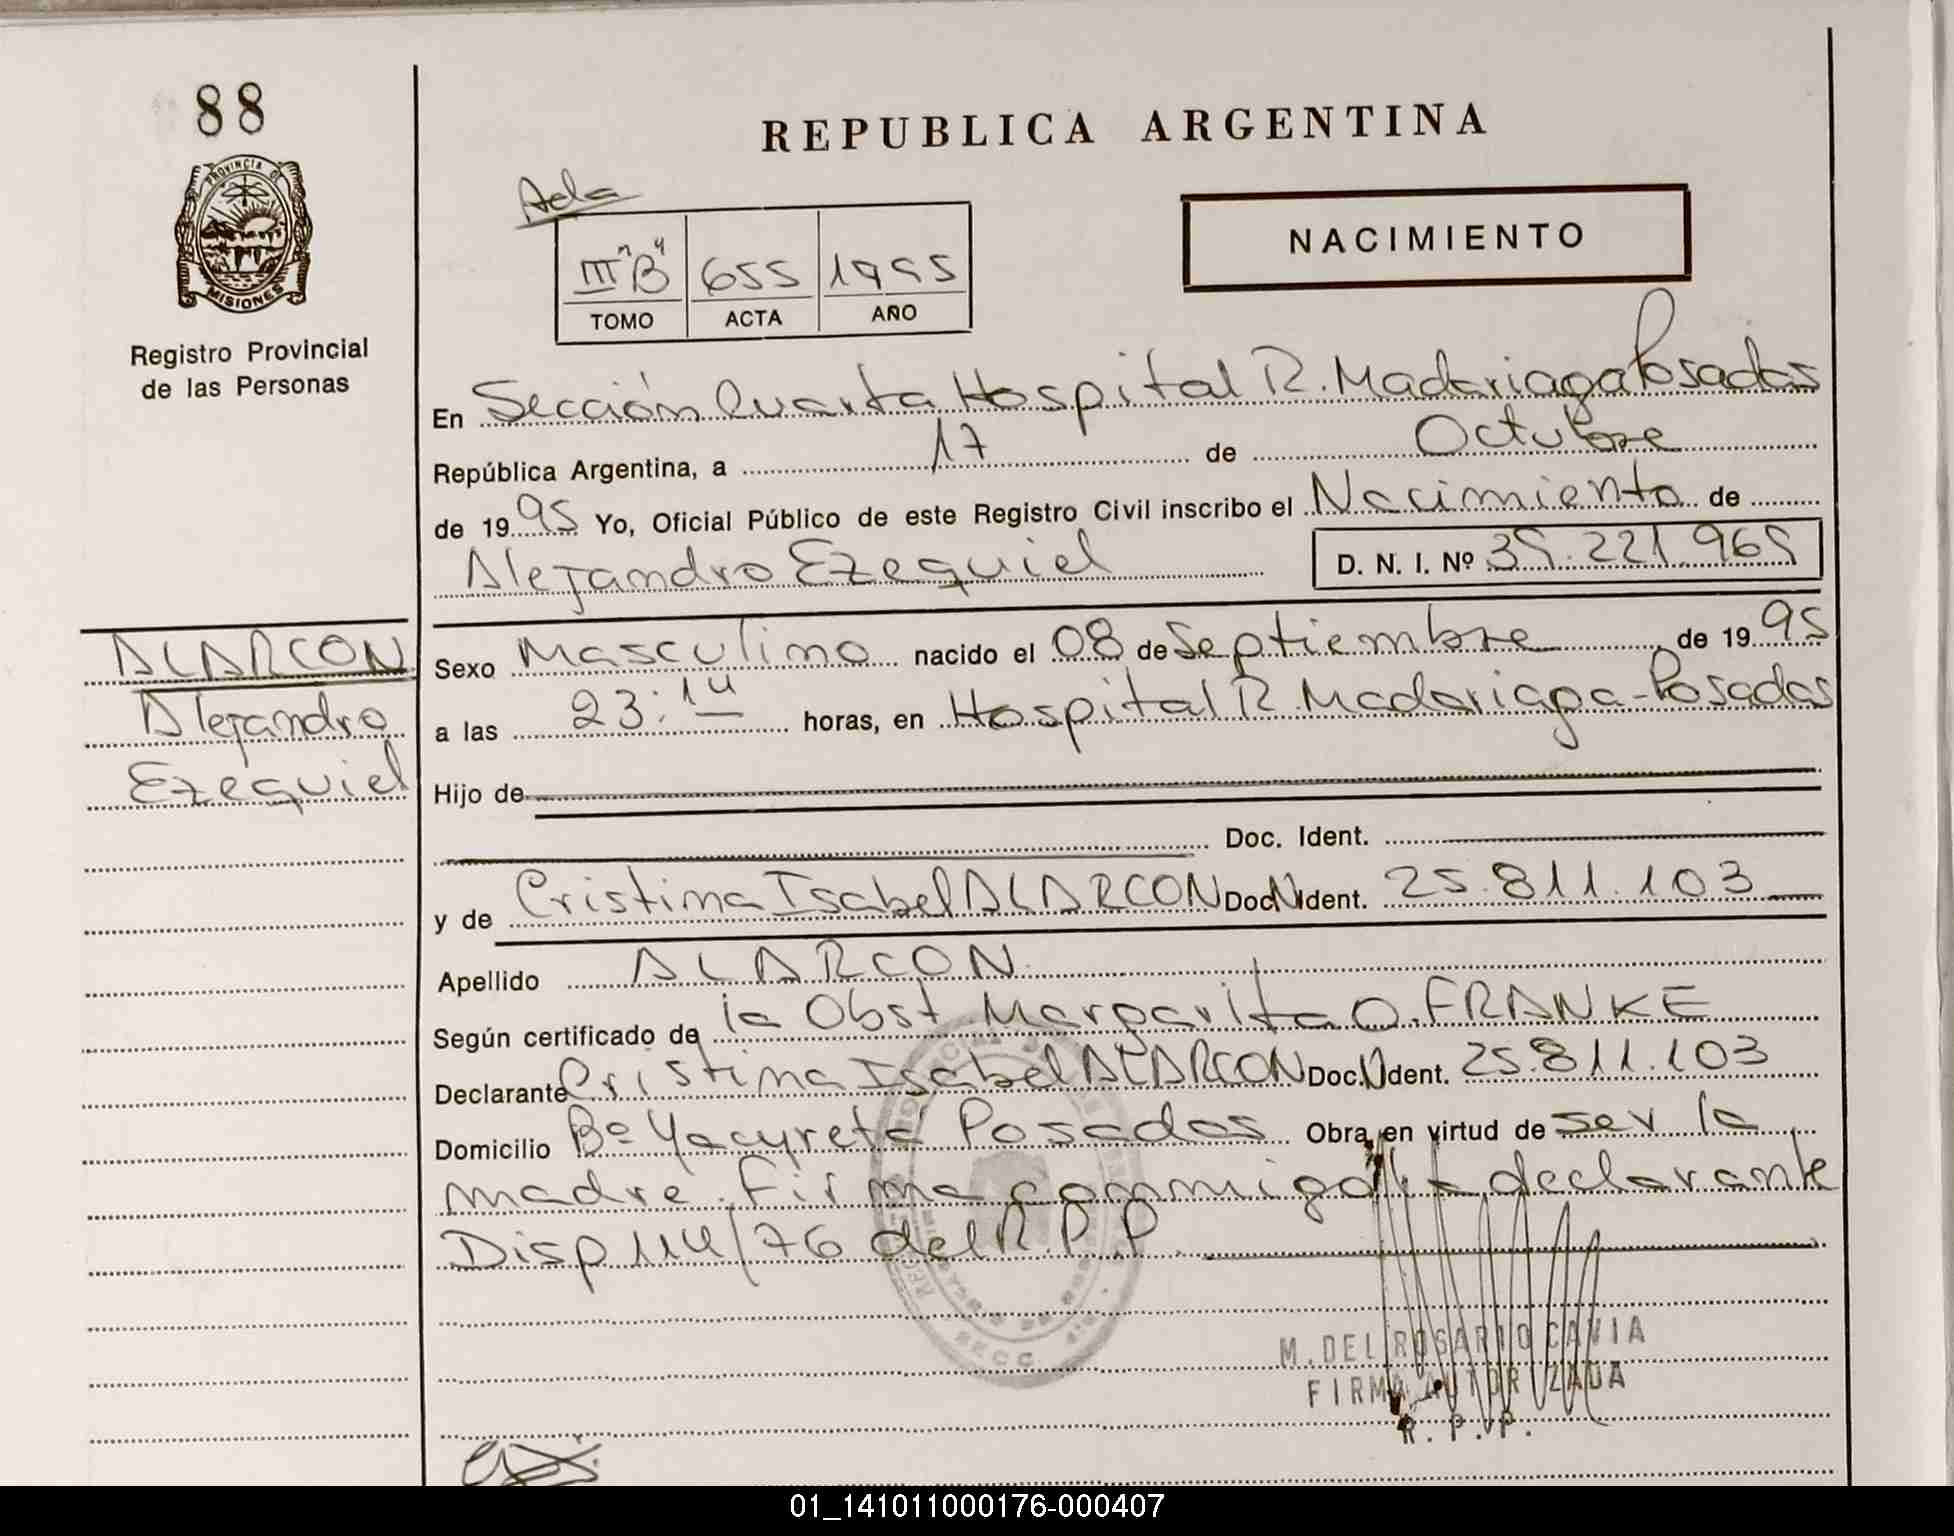 88
PROVINCIA DE
MISIONES
Registro Provincial
de las Personas
REPUBLICA ARGENTINA
NACIMIENTO
Acta
III "B" 655 1995
TOMO ACTA AÑO
En Sección Cuarta Hospital R. Madariaga Posadas
República Argentina, a 17 de Octubre
de 1995 Yo, Oficial Público de este Registro Civil inscribo el Nacimiento de
Alejandro Ezequiel D. N. I. Nº 39.221.965
ALARCON
Alejandro
Ezequiel
Sexo Masculino nacido el 08 de Septiembre de 1995
a las 23:14 horas, en Hospital R. Madariaga-Posadas
Hijo de
Doc. Ident.
y de Cristina Isabel ALARCON Doc. Ident. 25.811.103
Apellido ALARCON
Según certificado de la Obst Margarita O. FRANKE
Declarante Cristina Isabel ALARCON Doc. Ident. 25.811.103
Domicilio Bº Yacyretá Posadas Obra en virtud de ser la
madre. Firma conmigo la declarante
Disp 114/76 del R.P.P.
M. DEL ROSARIO CAVIA
FIRMA AUTORIZADA
R. P. P.
01_141011000176-000407